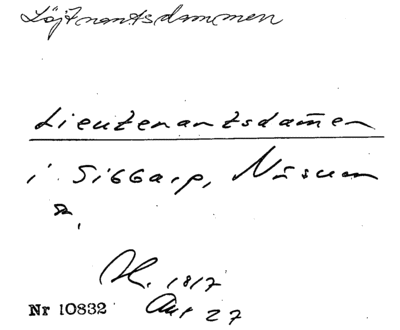 Löjtnantsdammen
Lieutenantsdam̄en
i Sibbarp, Näsum
sn.
H. 1817
Nr 10832